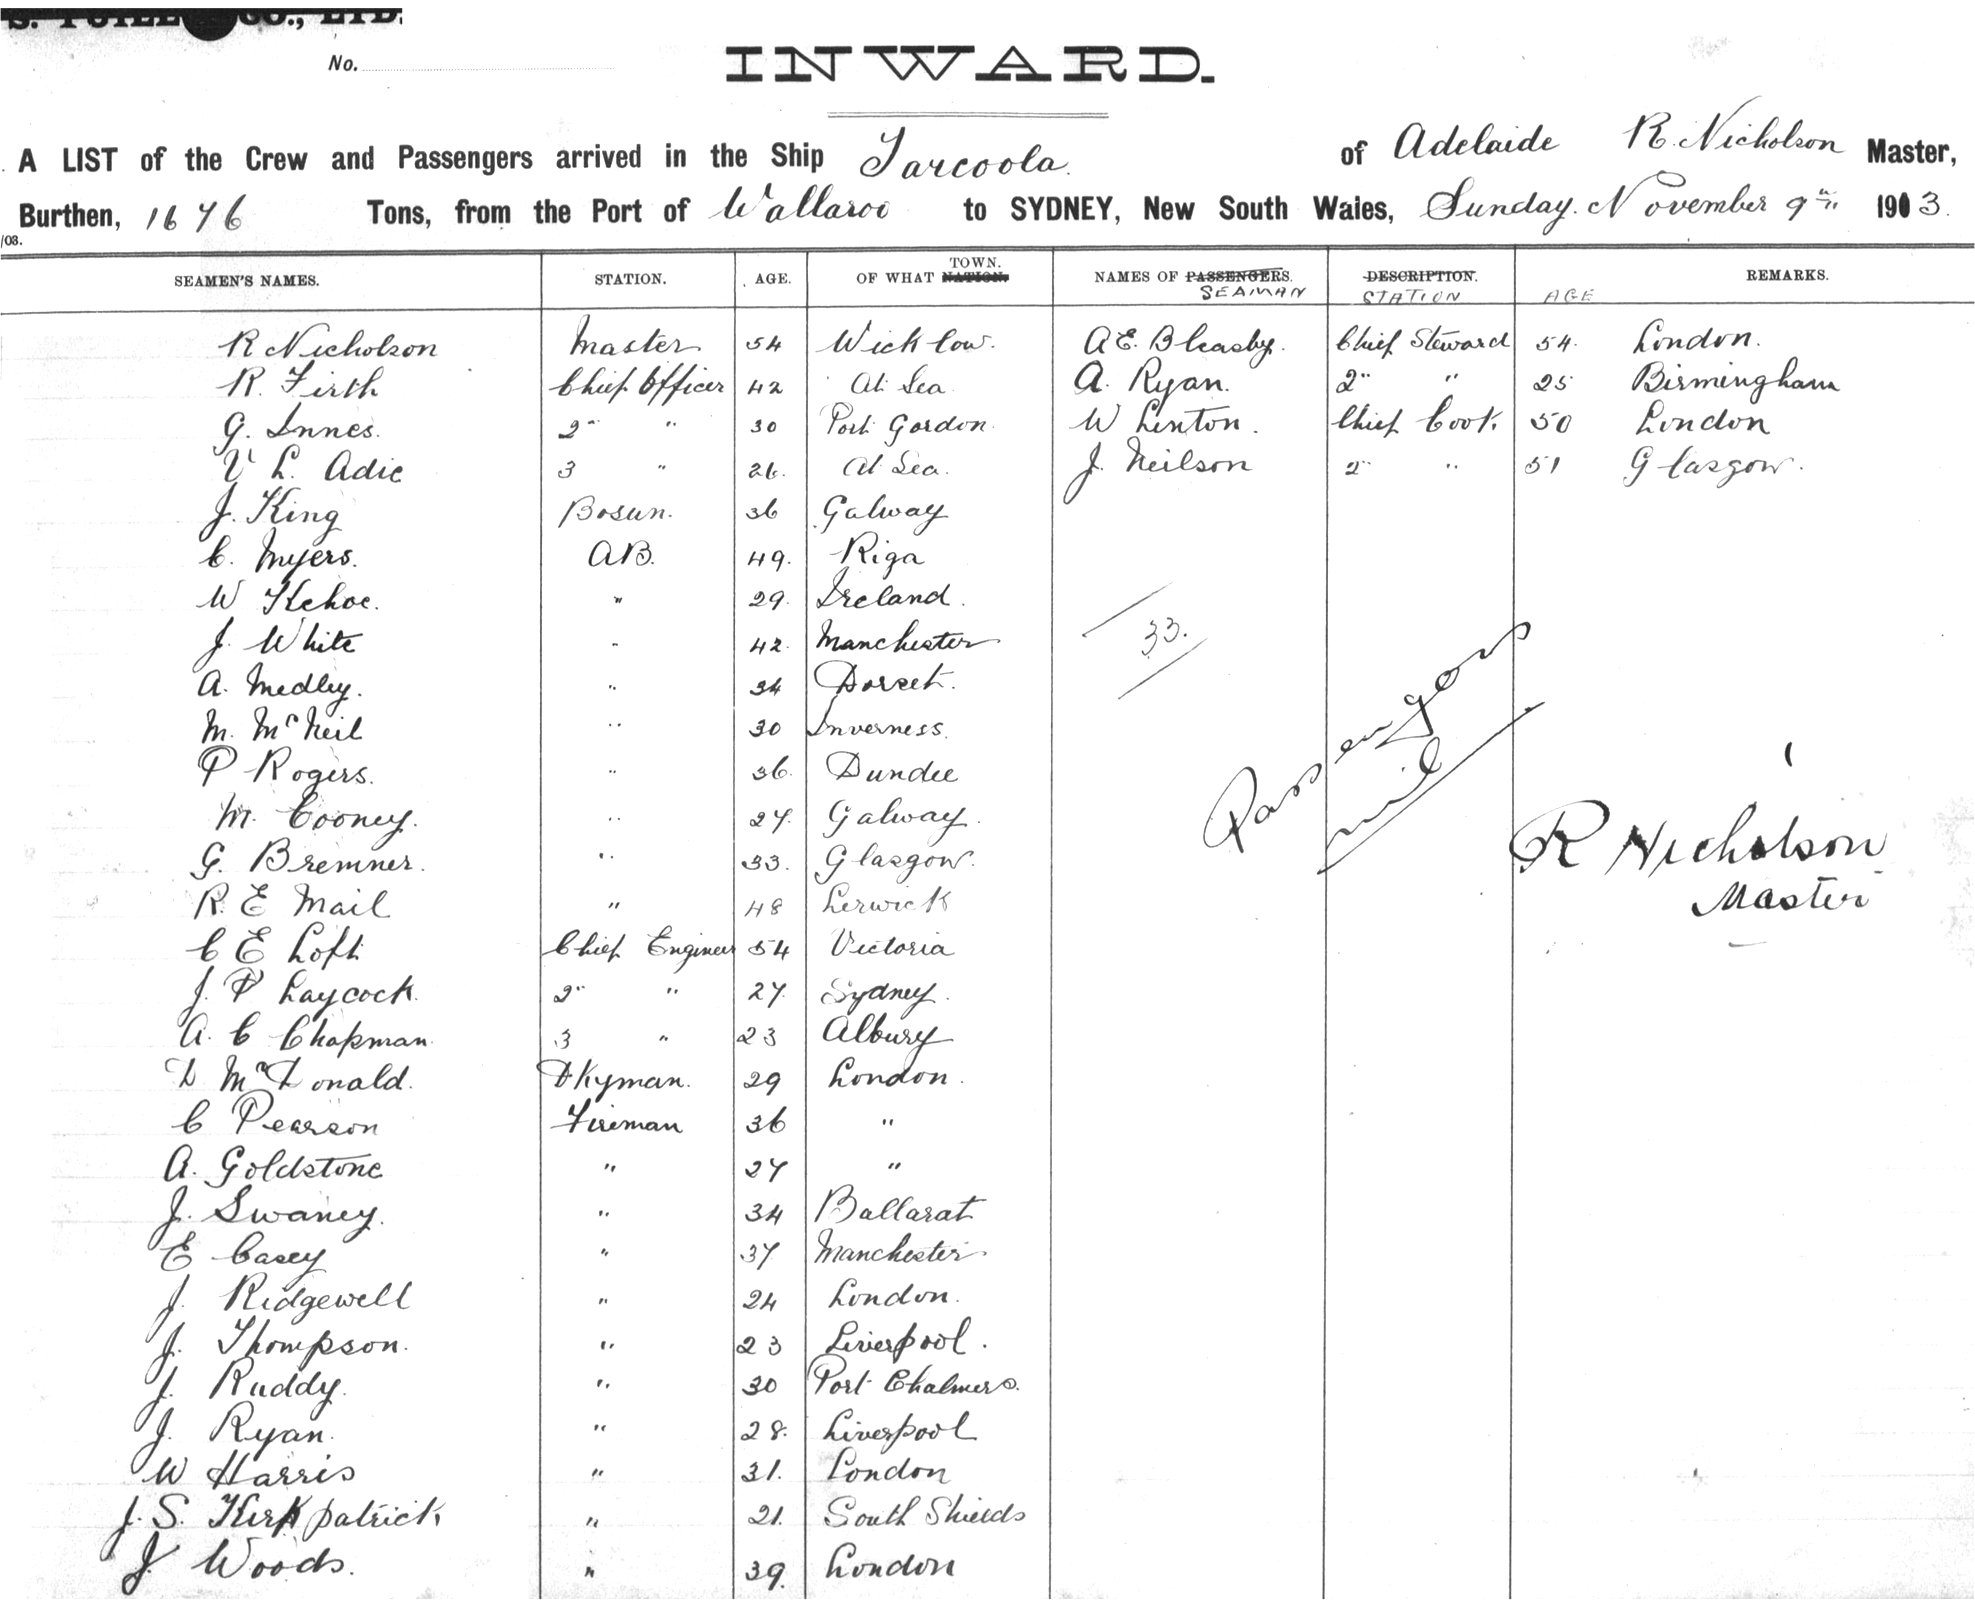 No.
INWARD.
A LIST of the Crew and Passengers arrived in the Ship Tarcoola. of Adelaide R. Nicholson Master,
Burthen, 1646 Tons, from the Port of Wallaroo to SYDNEY, New South Wales, Sunday. November 9th 1913.
/08.
SEAMEN'S NAMES. STATION. AGE. OF WHAT NATION. TOWN. NAMES OF PASSENGERS. SEAMAN DESCRIPTION. STATION AGE REMARKS.
R Nicholson Master 54 Wicklow. A E. Bleasby. Chief Steward 54. London.
R. Firth Chief Officer 42 At Sea A. Ryan. 2" " 25 Birmingham
G. Innes. 2" " 30 Port Gordon. W Linton. Chief Cook. 50 London
V L. Adie 3 " 26. At Sea. J. Neilson 2" " 51 Glasgow.
J. King Bosun. 36 Galway
C. Myers. AB. 49. Riga
W Kehoe. " 29. Ireland.
J. White " 42. Manchester
A. Medley. " 34 Dorset.
M. McNeil " 30 Inverness.
P Rogers. " 36. Dundee
M. Cooney. " 27. Galway.
G. Bremner. " 33. Glasgow.
R. E Mail " 48 Lerwick
C E Loft Chief Engineer 54 Victoria
J. P Laycock. 2" " 27. Sydney.
A. C Chapman 3 " 23 Albury
D McDonald. Dkyman. 29 London.
C Pearson Fireman 36 "
A. Goldstone " 27 "
J. Swaney. " 34 Ballarat
E Casey " 37 Manchester
J. Ridgewell " 24 London.
J. Thompson. " 23 Liverpool.
J. Ruddy. " 30 Port Chalmers.
J. Ryan. " 28. Liverpool
W Harris " 31. London
J. S. Kirkpatrick " 21. South Shields
J Woods. " 39. London
33.
Passengers
nil
R Nicholson
Master